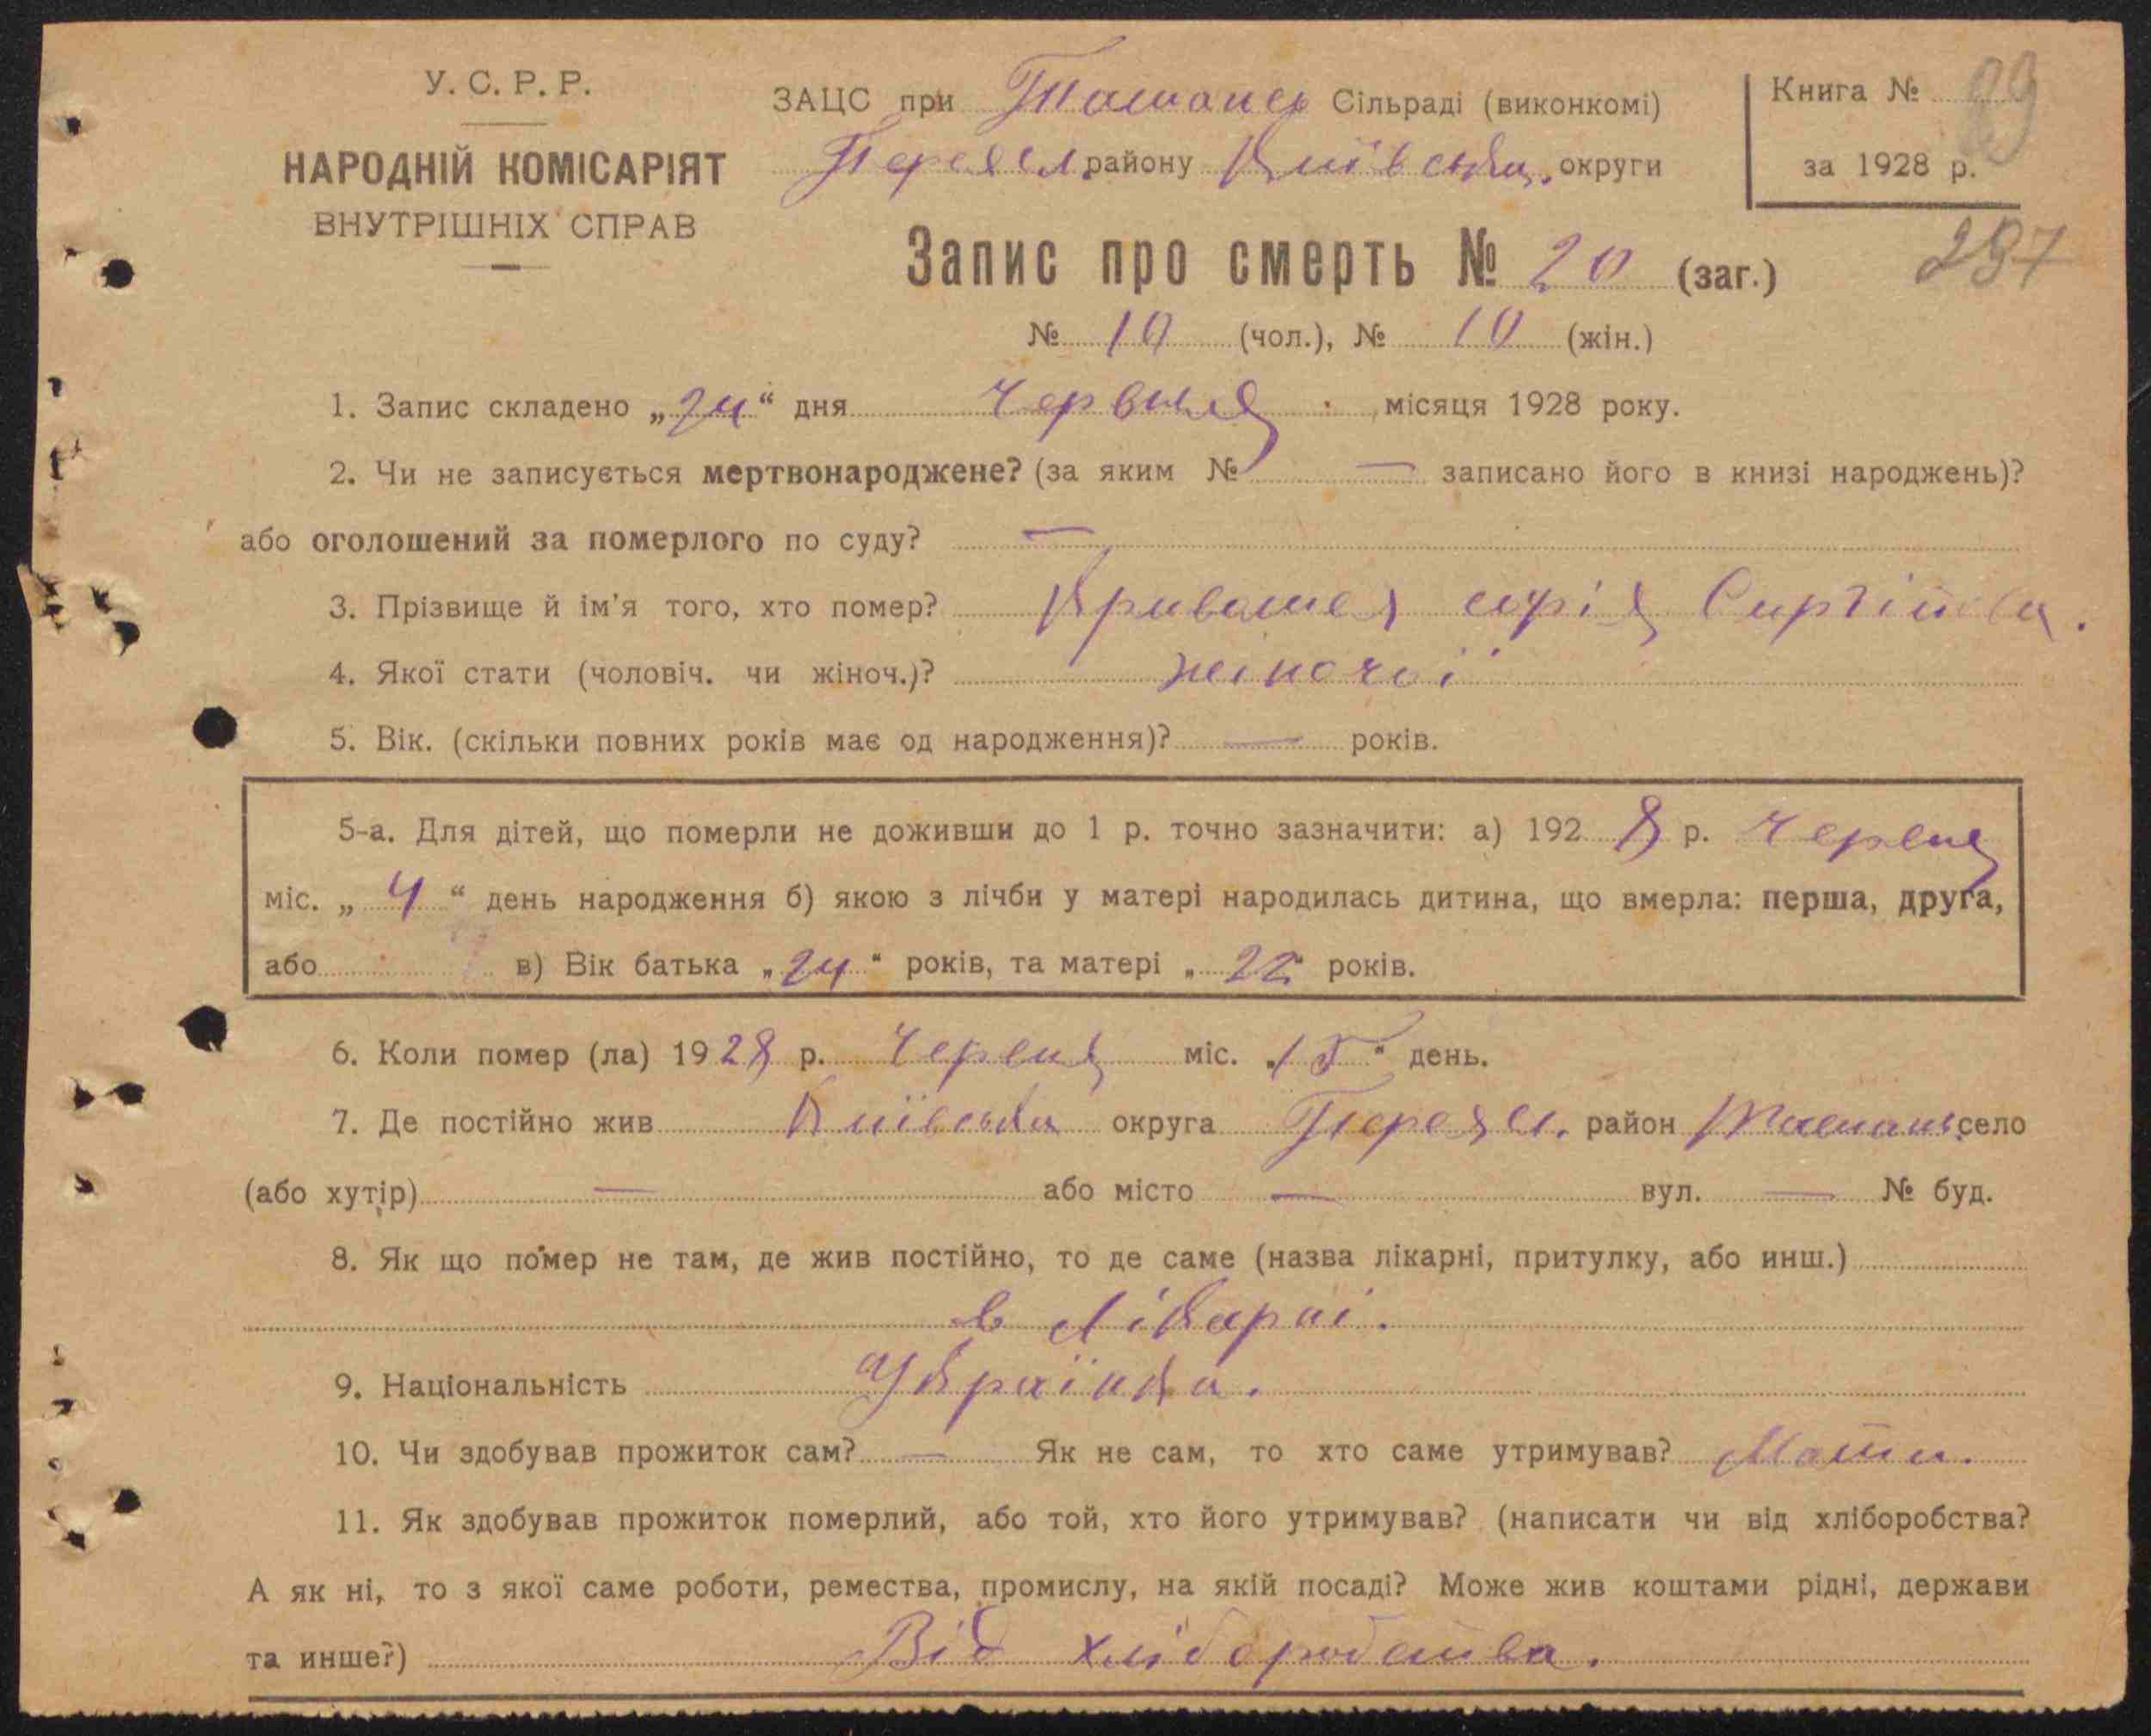 У. С. Р. Р.
НАРОДНІЙ КОМІСАРІЯТ
ВНУТРІШНІХ СПРАВ
ЗАЦС при Ташансь Сільраді (виконкомі)
Переясл. району Київська. округи
Книга № 89
за 1928 р.
297
Запис про смерть № 20 (заг.)
№ 10 (чол.), № 10 (жін.)
1. Запис складено „24“ дня Червня місяця 1928 року.
2. Чи не записується мертвонароджене? (за яким № — записано його в книзі народжень)?
або оголошений за померлого по суду? —
3. Прізвище й ім’я того, хто помер? Кривошея софія Сиргіївна.
4. Якої стати (чоловіч. чи жіноч.)? жіночої
5. Вік. (скільки повних років має од народження)? — років.
5-а. Для дітей, що померли не доживши до 1 р. точно зазначити: а) 1928 р. Червня
міс. „4“ день народження б) якою з лічби у матері народилась дитина, що вмерла: перша, друга,
або в) Вік батька „24“ років, та матері „22“ років.
6. Коли помер (ла) 1928 р. Червня міс. „15“ день.
7. Де постійно жив Київська округа Переясл. район Ташань село
(або хутір) — або місто — вул. — № буд.
8. Як що помер не там, де жив постійно, то де саме (назва лікарні, притулку, або инш.)
в лікарні.
9. Національність Українка.
10. Чи здобував прожиток сам? — Як не сам, то хто саме утримував? Мати.
11. Як здобував прожиток померлий, або той, хто його утримував? (написати чи від хліборобства?
А як ні, то з якої саме роботи, ремества, промислу, на якій посаді? Може жив коштами рідні, держави
та инше?) Від хліборобства.